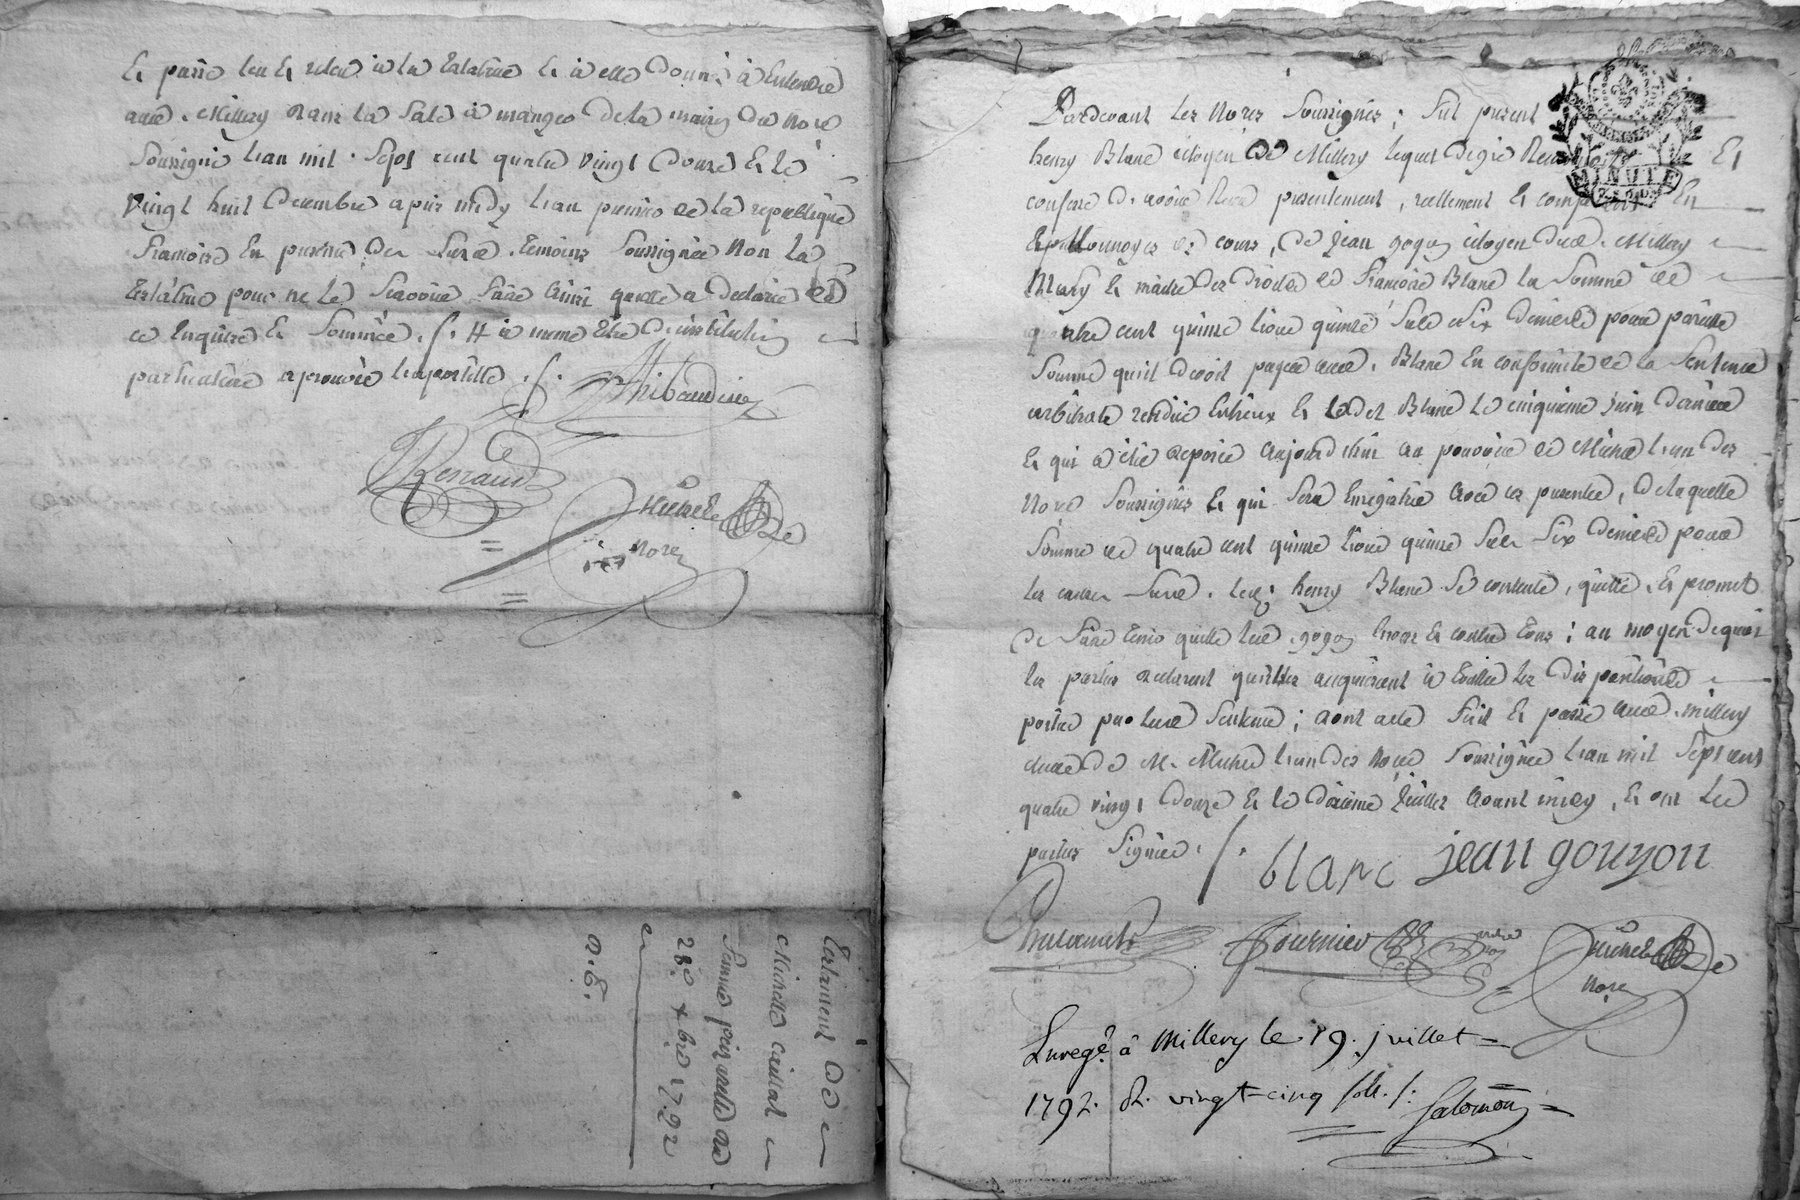 Et passé leu et relu à la testatrice et à elle donné à entendre
aud. Millery dans la sale à manger de la maison du nore
soussigné l'an mil sept cent quatre vingt douze et le
vingt huit decembre apres midy l'an premier de la republique
francoise en presence des susd. temoins soussignés non la
testatrice pour ne le scavoir faire ainsi quelle a declaré de
ce enquise et sommée ./. H à meme etre d'institution
particuliere aprouvé l'apostille ./. Thibaudier
Renaud
Michel
nore
Testament de
Michelle caillat
femme
28e xbre 1792
a. E.
Pardevant les nores soussignés ; fut present
henry Blanc citoyen de Millery lequel de gré
et
confesse d'avoir recu presentement, reellement et comptant en
de cours, de jean gogon citoyen dud. Millery
Mary et maitre des droits de francoise Blanc la somme de
quatre cent quinze livres quinze sols six deniers pour pareille
somme qu'il devoit payer aud. Blanc en conformité de la sentence
arbitrale rendüe entr'eux et led. Blanc le cinquieme juin dernier
et qui a été deposée aujourd'huy au pouvoir de Michel l'un des
nores soussignés et qui sera enregistrée avec ces presentes, de laquelle
somme de quatre cent quinze livres quinze sols six deniers pour
les causes susd. led. henry Blanc se contente, quitte, et promet
de faire tenir quitte led. gogon envers et contre tous ; au moyen de quoi
les parties declarent qu'elles acquiescent à toutes les dispositions
portées par lad. sentence ; dont acte fait et passé aud. millery
étude de M. Michel l'un des nores soussignés l'an mil sept cent
quatre vingt douze et le dixieme juillet avant midy, et ont les
parties signé ./. blanc jean gouyon
Fournier
Michel
nore
Enregé à Millery le 19. juillet
1792. R. vingt-cinq sols ./. Salomon
MINUTE